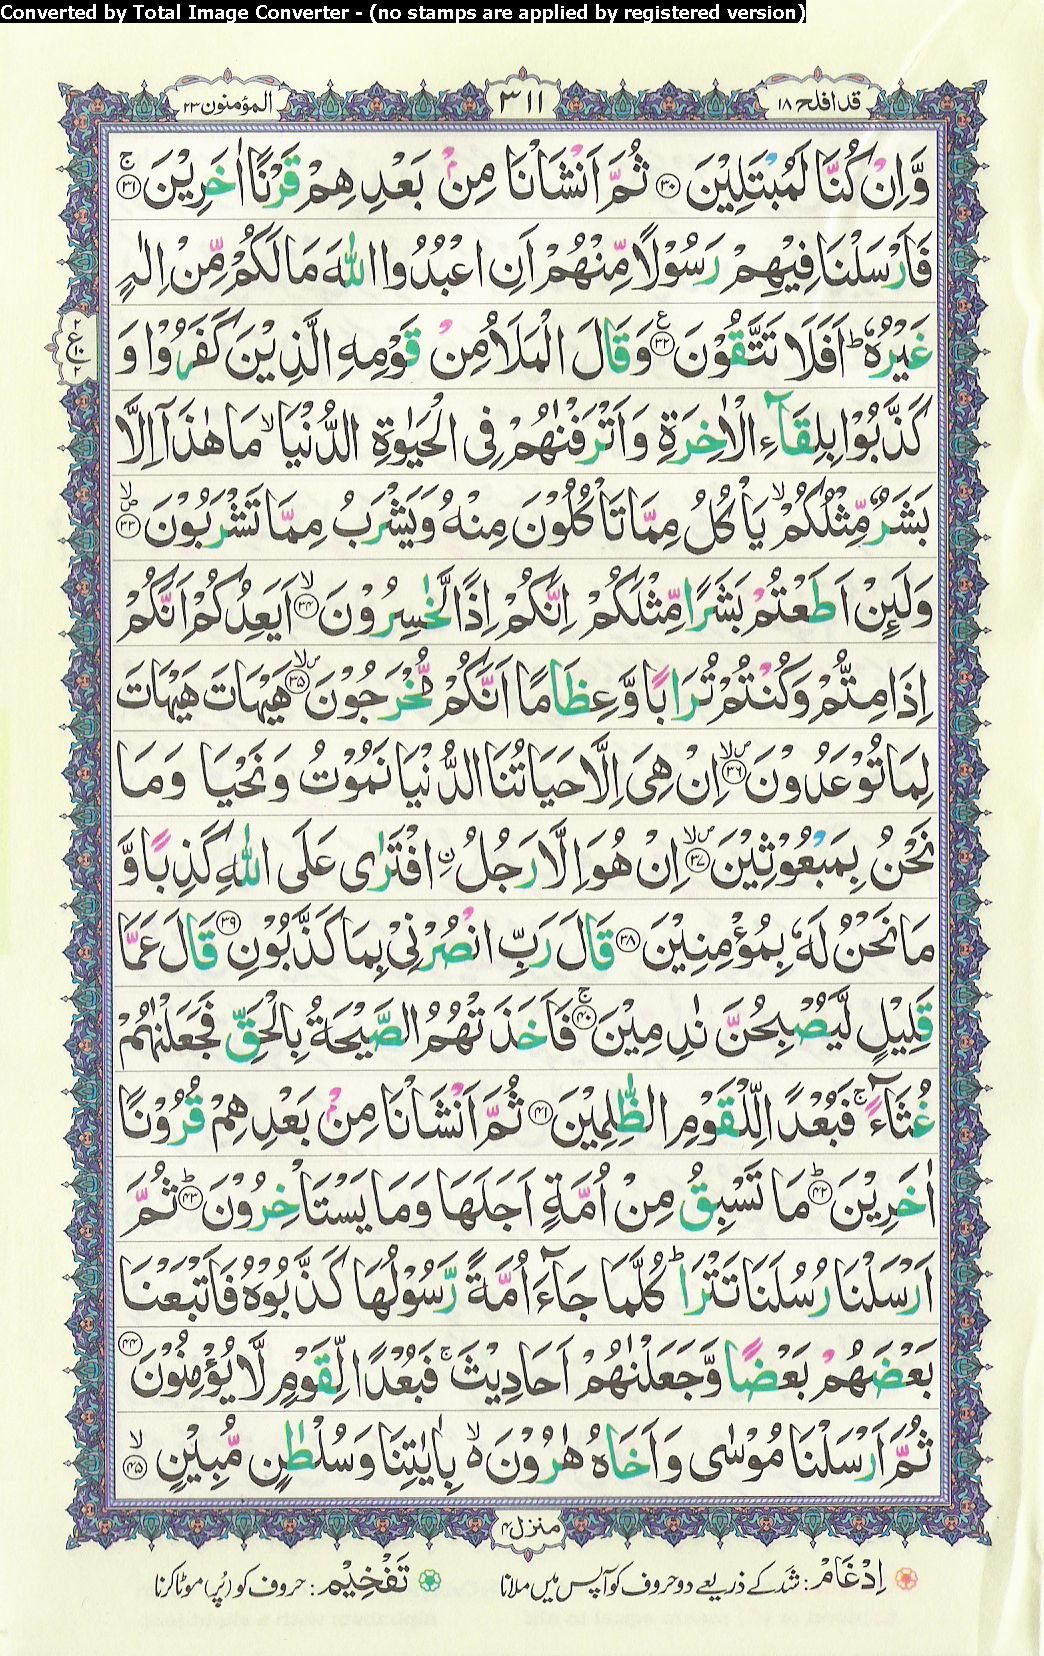 Converted by Total Image Converter - (no stamps are applied by registered version)
قد افلح ١٨ ٣١١ المؤمنون ٢٣
وَّاِنۡ كُنَّا لَمُبۡتَلِيۡنَ ﴿۳۰﴾ ثُمَّ اَنۡشَاۡنَا مِنۡۢ بَعۡدِهِمۡ قَرۡنًا اٰخَرِيۡنَ ۚ﴿۳۱﴾
فَاَرۡسَلۡنَا فِيۡهِمۡ رَسُوۡلًا مِّنۡهُمۡ اَنِ اعۡبُدُوا اللّٰهَ مَا لَكُمۡ مِّنۡ اِلٰهٍ
غَيۡرُهٗ ؕ اَفَلَا تَتَّقُوۡنَ ﴿۳۲﴾ ع وَقَالَ الۡمَلَاُ مِنۡ قَوۡمِهِ الَّذِيۡنَ كَفَرُوۡا وَ
كَذَّبُوۡا بِلِقَآءِ الۡاٰخِرَةِ وَاَتۡرَفۡنٰهُمۡ فِى الۡحَيٰوةِ الدُّنۡيَا ۙ مَا هٰذَاۤ اِلَّا
بَشَرٌ مِّثۡلُكُمۡ ۙ يَاۡكُلُ مِمَّا تَاۡكُلُوۡنَ مِنۡهُ وَيَشۡرَبُ مِمَّا تَشۡرَبُوۡنَ ۪ۙ﴿۳۳﴾
وَلَئِنۡ اَطَعۡتُمۡ بَشَرًا مِّثۡلَكُمۡ اِنَّكُمۡ اِذًا لَّخٰسِرُوۡنَ ۙ﴿۳۴﴾ اَيَعِدُكُمۡ اَنَّكُمۡ
اِذَا مِتُّمۡ وَكُنۡتُمۡ تُرَابًا وَّعِظَامًا اَنَّكُمۡ مُّخۡرَجُوۡنَ ۪ۙ﴿۳۵﴾ هَيۡهَاتَ هَيۡهَاتَ
لِمَا تُوۡعَدُوۡنَ ۪ۙ﴿۳۶﴾ اِنۡ هِىَ اِلَّا حَيَاتُنَا الدُّنۡيَا نَمُوۡتُ وَنَحۡيَا وَمَا
نَحۡنُ بِمَبۡعُوۡثِيۡنَ ۪ۙ﴿۳۷﴾ اِنۡ هُوَ اِلَّا رَجُلُ ۨ افۡتَرٰى عَلَى اللّٰهِ كَذِبًا وَّ
مَا نَحۡنُ لَهٗ بِمُؤۡمِنِيۡنَ ﴿۳۸﴾ قَالَ رَبِّ انۡصُرۡنِىۡ بِمَا كَذَّبُوۡنِ ﴿۳۹﴾ قَالَ عَمَّا
قَلِيۡلٍ لَّيُصۡبِحُنَّ نٰدِمِيۡنَ ۚ﴿۴۰﴾ فَاَخَذَتۡهُمُ الصَّيۡحَةُ بِالۡحَقِّ فَجَعَلۡنٰهُمۡ
غُثَآءً ۚ فَبُعۡدًا لِّلۡقَوۡمِ الظّٰلِمِيۡنَ ﴿۴۱﴾ ثُمَّ اَنۡشَاۡنَا مِنۡۢ بَعۡدِهِمۡ قُرُوۡنًا
اٰخَرِيۡنَ ؕ﴿۴۲﴾ مَا تَسۡبِقُ مِنۡ اُمَّةٍ اَجَلَهَا وَمَا يَسۡتَاۡخِرُوۡنَ ؕ﴿۴۳﴾ ثُمَّ
اَرۡسَلۡنَا رُسُلَنَا تَتۡرَا ؕ كُلَّمَا جَآءَ اُمَّةً رَّسُوۡلُهَا كَذَّبُوۡهُ فَاَتۡبَعۡنَا
بَعۡضَهُمۡ بَعۡضًا وَّجَعَلۡنٰهُمۡ اَحَادِيۡثَ ۚ فَبُعۡدًا لِّقَوۡمٍ لَّا يُؤۡمِنُوۡنَ ﴿۴۴﴾
ثُمَّ اَرۡسَلۡنَا مُوۡسٰى وَاَخَاهُ هٰرُوۡنَ ۙ بِاٰيٰتِنَا وَسُلۡطٰنٍ مُّبِيۡنٍ ۙ﴿۴۵﴾
منزل ۴
اِدۡغَامۡ: شَد کے ذریعے دو حروف کو آپس میں ملانا تَفۡخِيۡم: حروف کو (پُر) موٹا کرنا